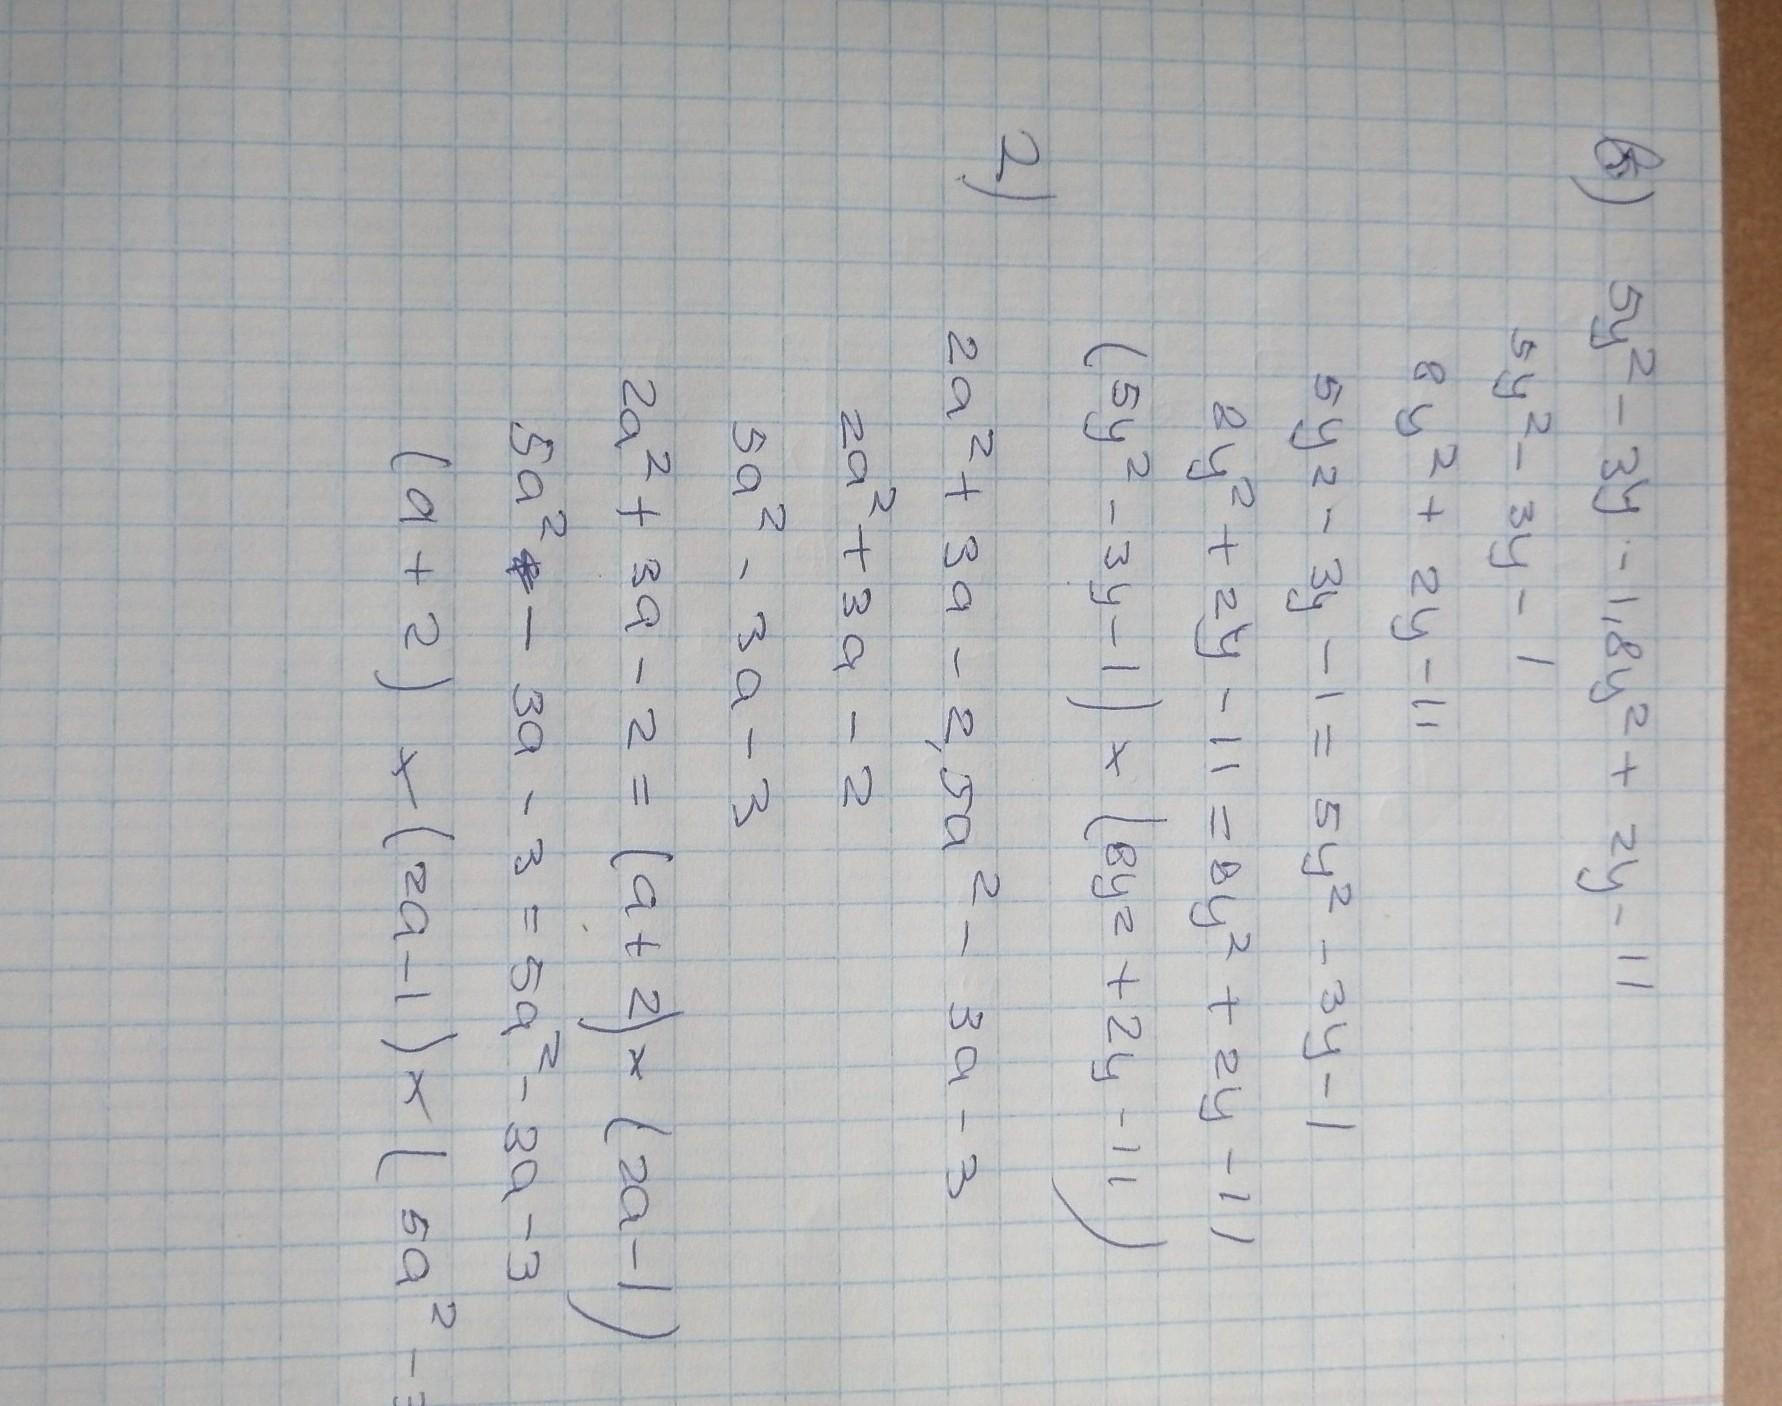 б) 5y² - 3y - 1,8y² + 2y - 11
5y² - 3y - 1
8y² + 2y - 11
5y² - 3y - 1 = 5y² - 3y - 1
8y² + 2y - 11 = 8y² + 2y - 11
(5y² - 3y - 1) × (8y² + 2y - 11)
2) 2a² + 3a - 2,5a² - 3a - 3
2a² + 3a - 2
5a² - 3a - 3
2a² + 3a - 2 = (a + 2) × (2a - 1)
5a² - 3a - 3 = 5a² - 3a - 3
(a + 2) × (2a - 1) × (5a² -